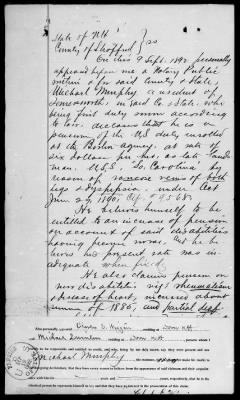 State of N.H. } ss
County of Strafford
On this 9 Sept. 1890 personally
appeared before me, a Notary Public
within & for said County & State,
Michael Murphy, a resident of
Somersworth, in said Co. & State, who
being first duly sworn according
to law, declares that he is a
pensioner of the U.S. duly enrolled
at the Boston agency, at rate of
six dollars per mo., as late "Lands-
man, U.S.S. So. Carolina"
reason of varicose veins of both
legs & dyspepsia. under Act
June 27, 1890,
He believes himself to be
entitled to an increase of pension
on account of said disabilities
having become worse, and he be-
lieves his present rate was in-
adequate when fixed.
He also claims pension on
new disabilities viz; rheumatism
& disease of heart, incurred about
summer of 1886, and partial deaf
Also personally appeared residing at Dover N.H. and
Michael residing at Dover N.H.
Michael Murphy